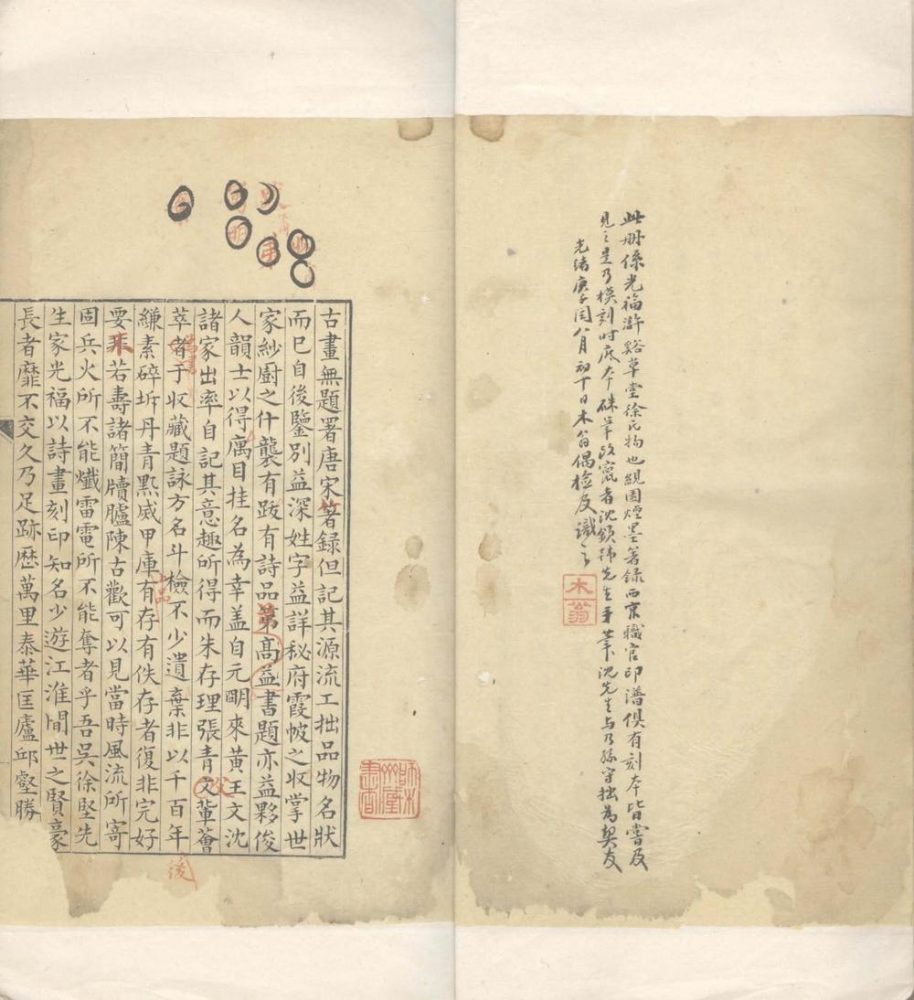 此册係光福滸谿草堂徐氏物也緄園煙墨著録西京職官印譜俱有刻本皆嘗及
見之是乃模刻時底本硃筆改竄者沈鎖狒先生手筆沈先生与乃孫守拙為契友
光緒庚子閏八月初十日木翁偶檢及識之
木翁
古畫無題署唐宋著録但記其源流工拙品物名狀
而已自後鑒別益深姓字益詳秘府霞帔之收掌世
家紗廚之什襲有跋有詩品第高益書題亦益夥俊
人韻士以得寓目挂名為幸盖自元明來黃王文沈
諸家出率自記其意趣所得而朱存理張青父輩薈
萃者于收藏題詠方名斗檢不少遺棄非以千百年後
縑素碎坼丹青黙烕甲庫有存有佚存者復非完好
要求若壽諸簡牘臚陳古歡可以見當時風流所寄
固兵火所不能爇雷電所不能奪者乎吾吳徐堅先
生家光福以詩畫刻印知名少遊江淮閒世之賢豪
長者靡不交久乃足跡歷萬里泰華匡廬邱壑勝